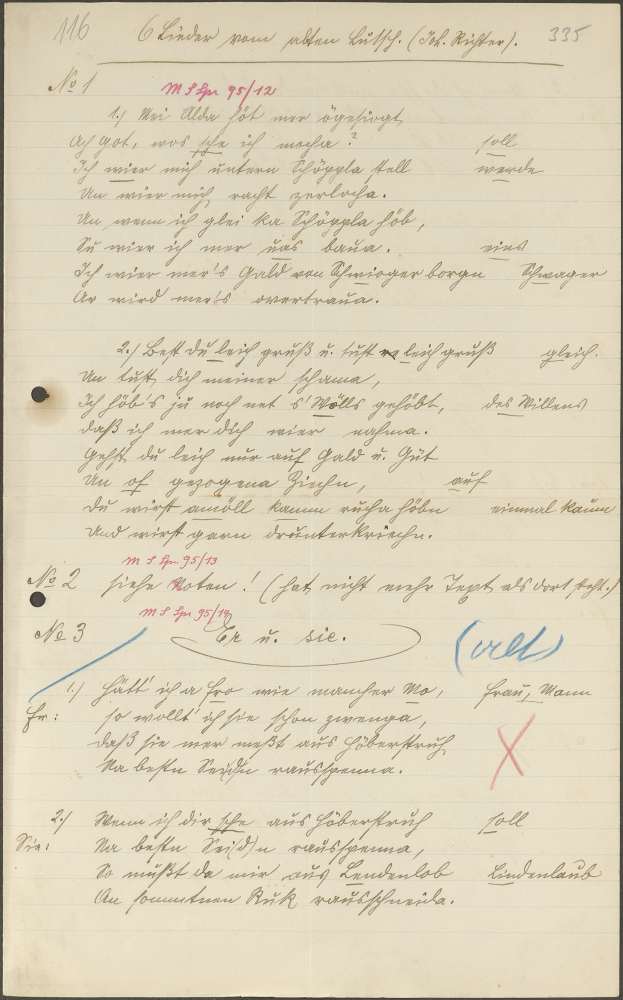 116 6 Lieder vom alten Lutsch. (Joh. Richter). 335
No 1 M S Spr 95/12
1.) Mei Alda höt mer ögesiogt
Ach Got, wos sche ich mecha? soll
Ich wier mich untern Schöppla stell werde
Un wier mich racht zerlocha.
Un wenn ich glei ka Schöppla höb,
Su wier ich mer uas baua. eins
Ich wier mer's Gald von Schwioger borgn Schwager
Ar wird mer's overtraua.
2.) Best du leich gruß u. tust leich gruß gleich.
Un tust dich meiner schama,
Ich höb's ju noch net s' Wölls gehöbt, des Willens
daß ich mer dich wier nahma.
Gehst du leich nur auf Gald u. Gut
Un of gezogena Ziechn, auf
du wirst amöll kamm rucha höbn einmal kaum
Und wirst garn drunterkriechn.
M S Spr. 95/13
No 2 siehe Noten! (hat nicht mehr Text als dort steht.)
M S Spr 95/14
No 3 Er u. sie. (alt)
1.) Hätt' ich a Fro wie mancher Mo, Frau, Mann
Er: so wollt' ich sie schon zwenga,
daß sie mer meßt aus Höberstruh
Na bestn Sei(d)n rausspenna.
2.) Wenn ich dir sche aus Höberstruh soll
Sie: Na bestn Sei(d)n rausspenna,
So mußt da mir aus Lendenlob Lindenlaub
An sommtnen Ruk rausschneida.